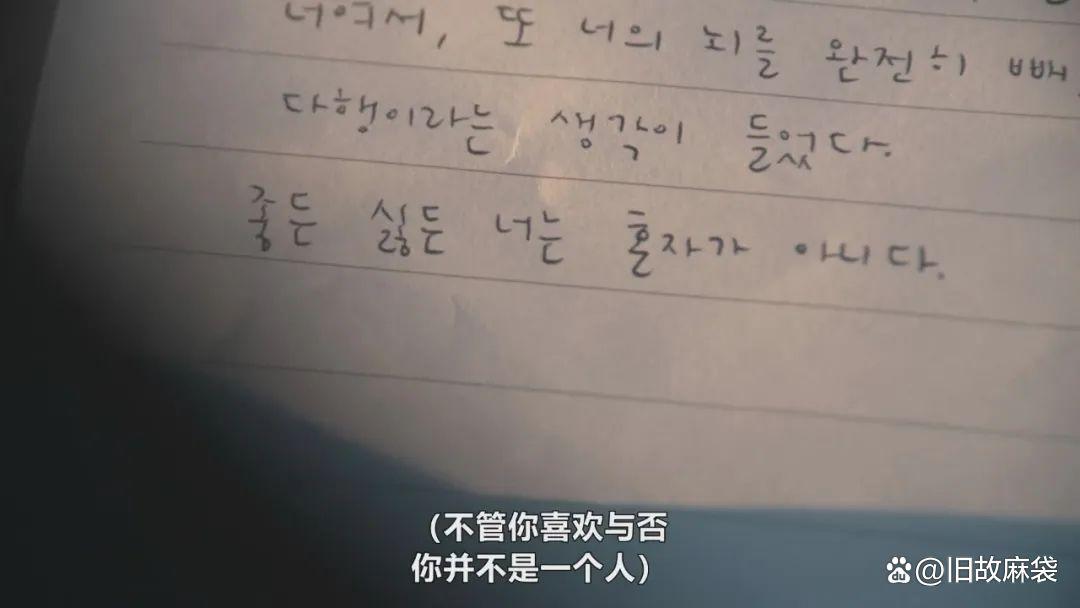 너여서, 또 너의 뇌를 완전히 빼
다행이라는 생각이 들었다.
좋든 싫든 너는 혼자가 아니다.
(不管你喜欢与否
你并不是一个人)
@旧故麻袋